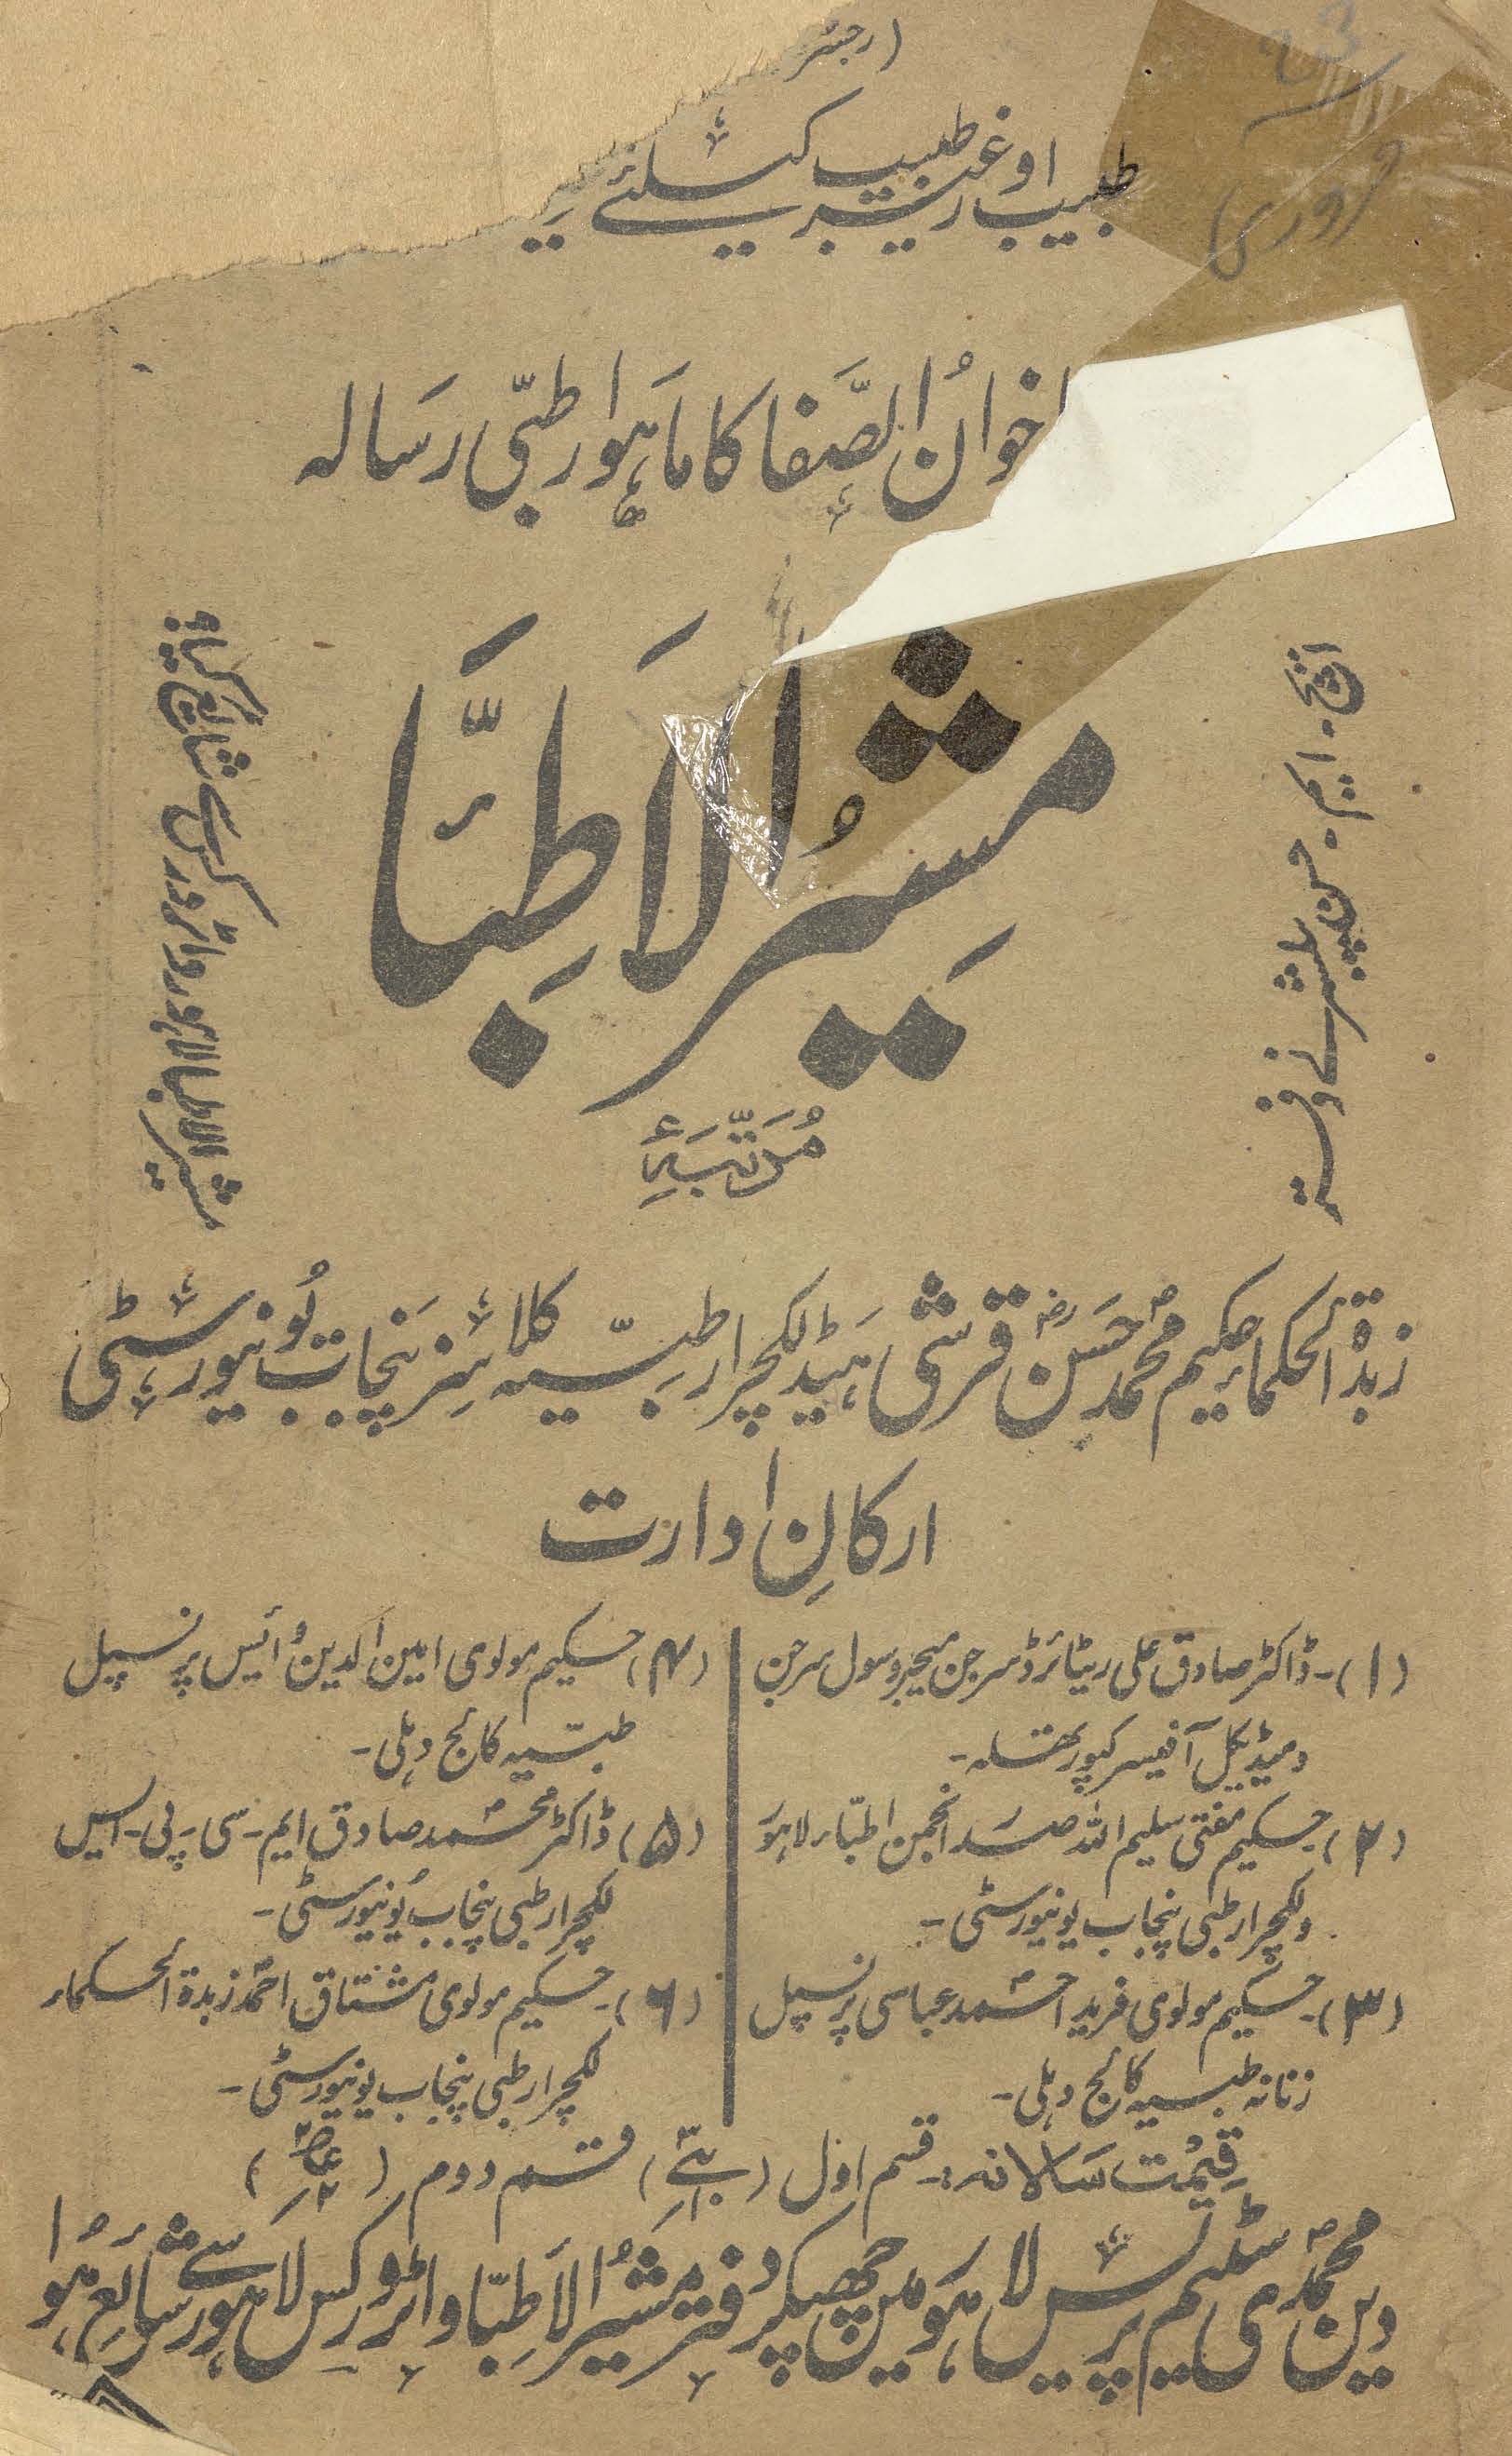 (رجسٹر
طبیب اور غیر طبیب کیلئے
اخوانُ الصَّفا کا ماہوار طبّی رسالہ
مشیرُ الاَطِبَّاء
ایچ۔ ایم۔ حسن پبلشر نے دفتر
مشیر الاطبا لاہور واٹر ورکس سے شائع کیا
مُرَتَّبَہٴ
زبدۃ الحکماء حکیم محمد حسن قرشی ہیڈ لکچرار طبّیہ کلاسز پنجاب یُونیورسٹی
ارکانِ ادارت
(۱)۔ ڈاکٹر صادق علی ریٹائرڈ سرجن میجر و سول سرجن
و میڈیکل آفیسر کپورتھلہ۔
(۲) حکیم مفتی سلیم اللہ صدر انجمن اطبّاء لاہور
و لکچرار طبی پنجاب یونیورسٹی۔
(۳)۔ حکیم مولوی فرید احمد عباسی پرنسپل
زنانہ طبیہ کالج دہلی۔
(۴) حکیم مولوی امین الدین وائیس پرنسپل
طبّیہ کالج دہلی۔
(۵) ڈاکٹر محمد صادق ایم۔سی۔پی۔ایس
لکچرار طبی پنجاب یُونیورسٹی۔
(۶)۔ حکیم مولوی مشتاق احمد زبدۃ الحکماء
لکچرار طبی پنجاب یونیورسٹی۔
قیمت سالانہ:۔ قسم اول ( ) قسم دوم ( )
دین محمدی سٹیم پریس لاہور میں چھپکر دفتر مشیرُ الاَطِبّا واٹر ورکس لاہور سے شائع ہُوا
فروری